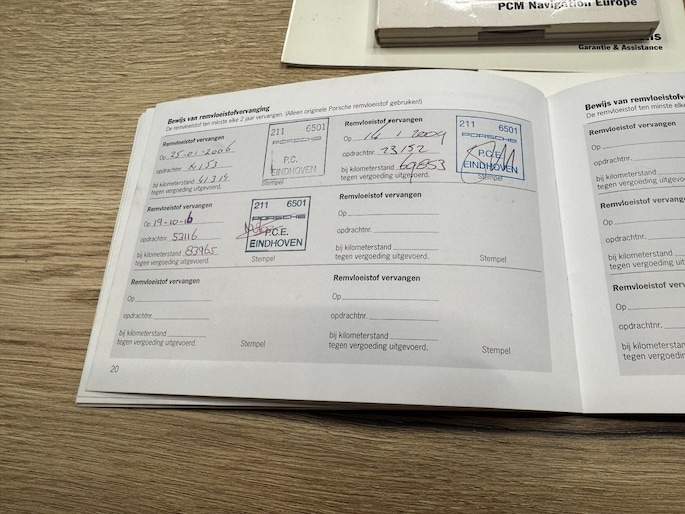 PCM Navigation Europe
Garantie & Assistance
Bewijs van remvloeistofvervanging
De remvloeistof ten minste elke 2 jaar vervangen. (Alleen originele Porsche remvloeistof gebruiken!)
Remvloeistof vervangen
Op 25-01-2006
opdrachtnr.
bij kilometerstand 41314
tegen vergoeding uitgevoerd.
211 6501
PORSCHE
P.C.
EINDHOVEN
Stempel
Remvloeistof vervangen
Op 14 1 2009
opdrachtnr. 23152
bij kilometerstand 69853
tegen vergoeding uitgevoerd.
211 6501
PORSCHE
P.C.E.
EINDHOVEN
Stempel
Remvloeistof vervangen
Op 19-10-16
opdrachtnr. 53116
bij kilometerstand 83965
tegen vergoeding uitgevoerd.
211 6501
PORSCHE
P.C.E.
EINDHOVEN
Stempel
Remvloeistof vervangen
Op
opdrachtnr.
bij kilometerstand
tegen vergoeding uitgevoerd.
Stempel
Remvloeistof vervangen
Op
opdrachtnr.
bij kilometerstand
tegen vergoeding uitgevoerd.
Stempel
Remvloeistof vervangen
Op
opdrachtnr.
bij kilometerstand
tegen vergoeding uitgevoerd.
Stempel
20
Bewijs van
De remvloeistof ten minste elke
Remvloeistof vervangen
Op
opdrachtnr.
bij kilometerstand
tegen vergoeding
Remvloeistof
Op
opdrachtnr.
bij kilometerstand
tegen vergoeding
Remvloeistof
Op
opdrachtnr.
tegen